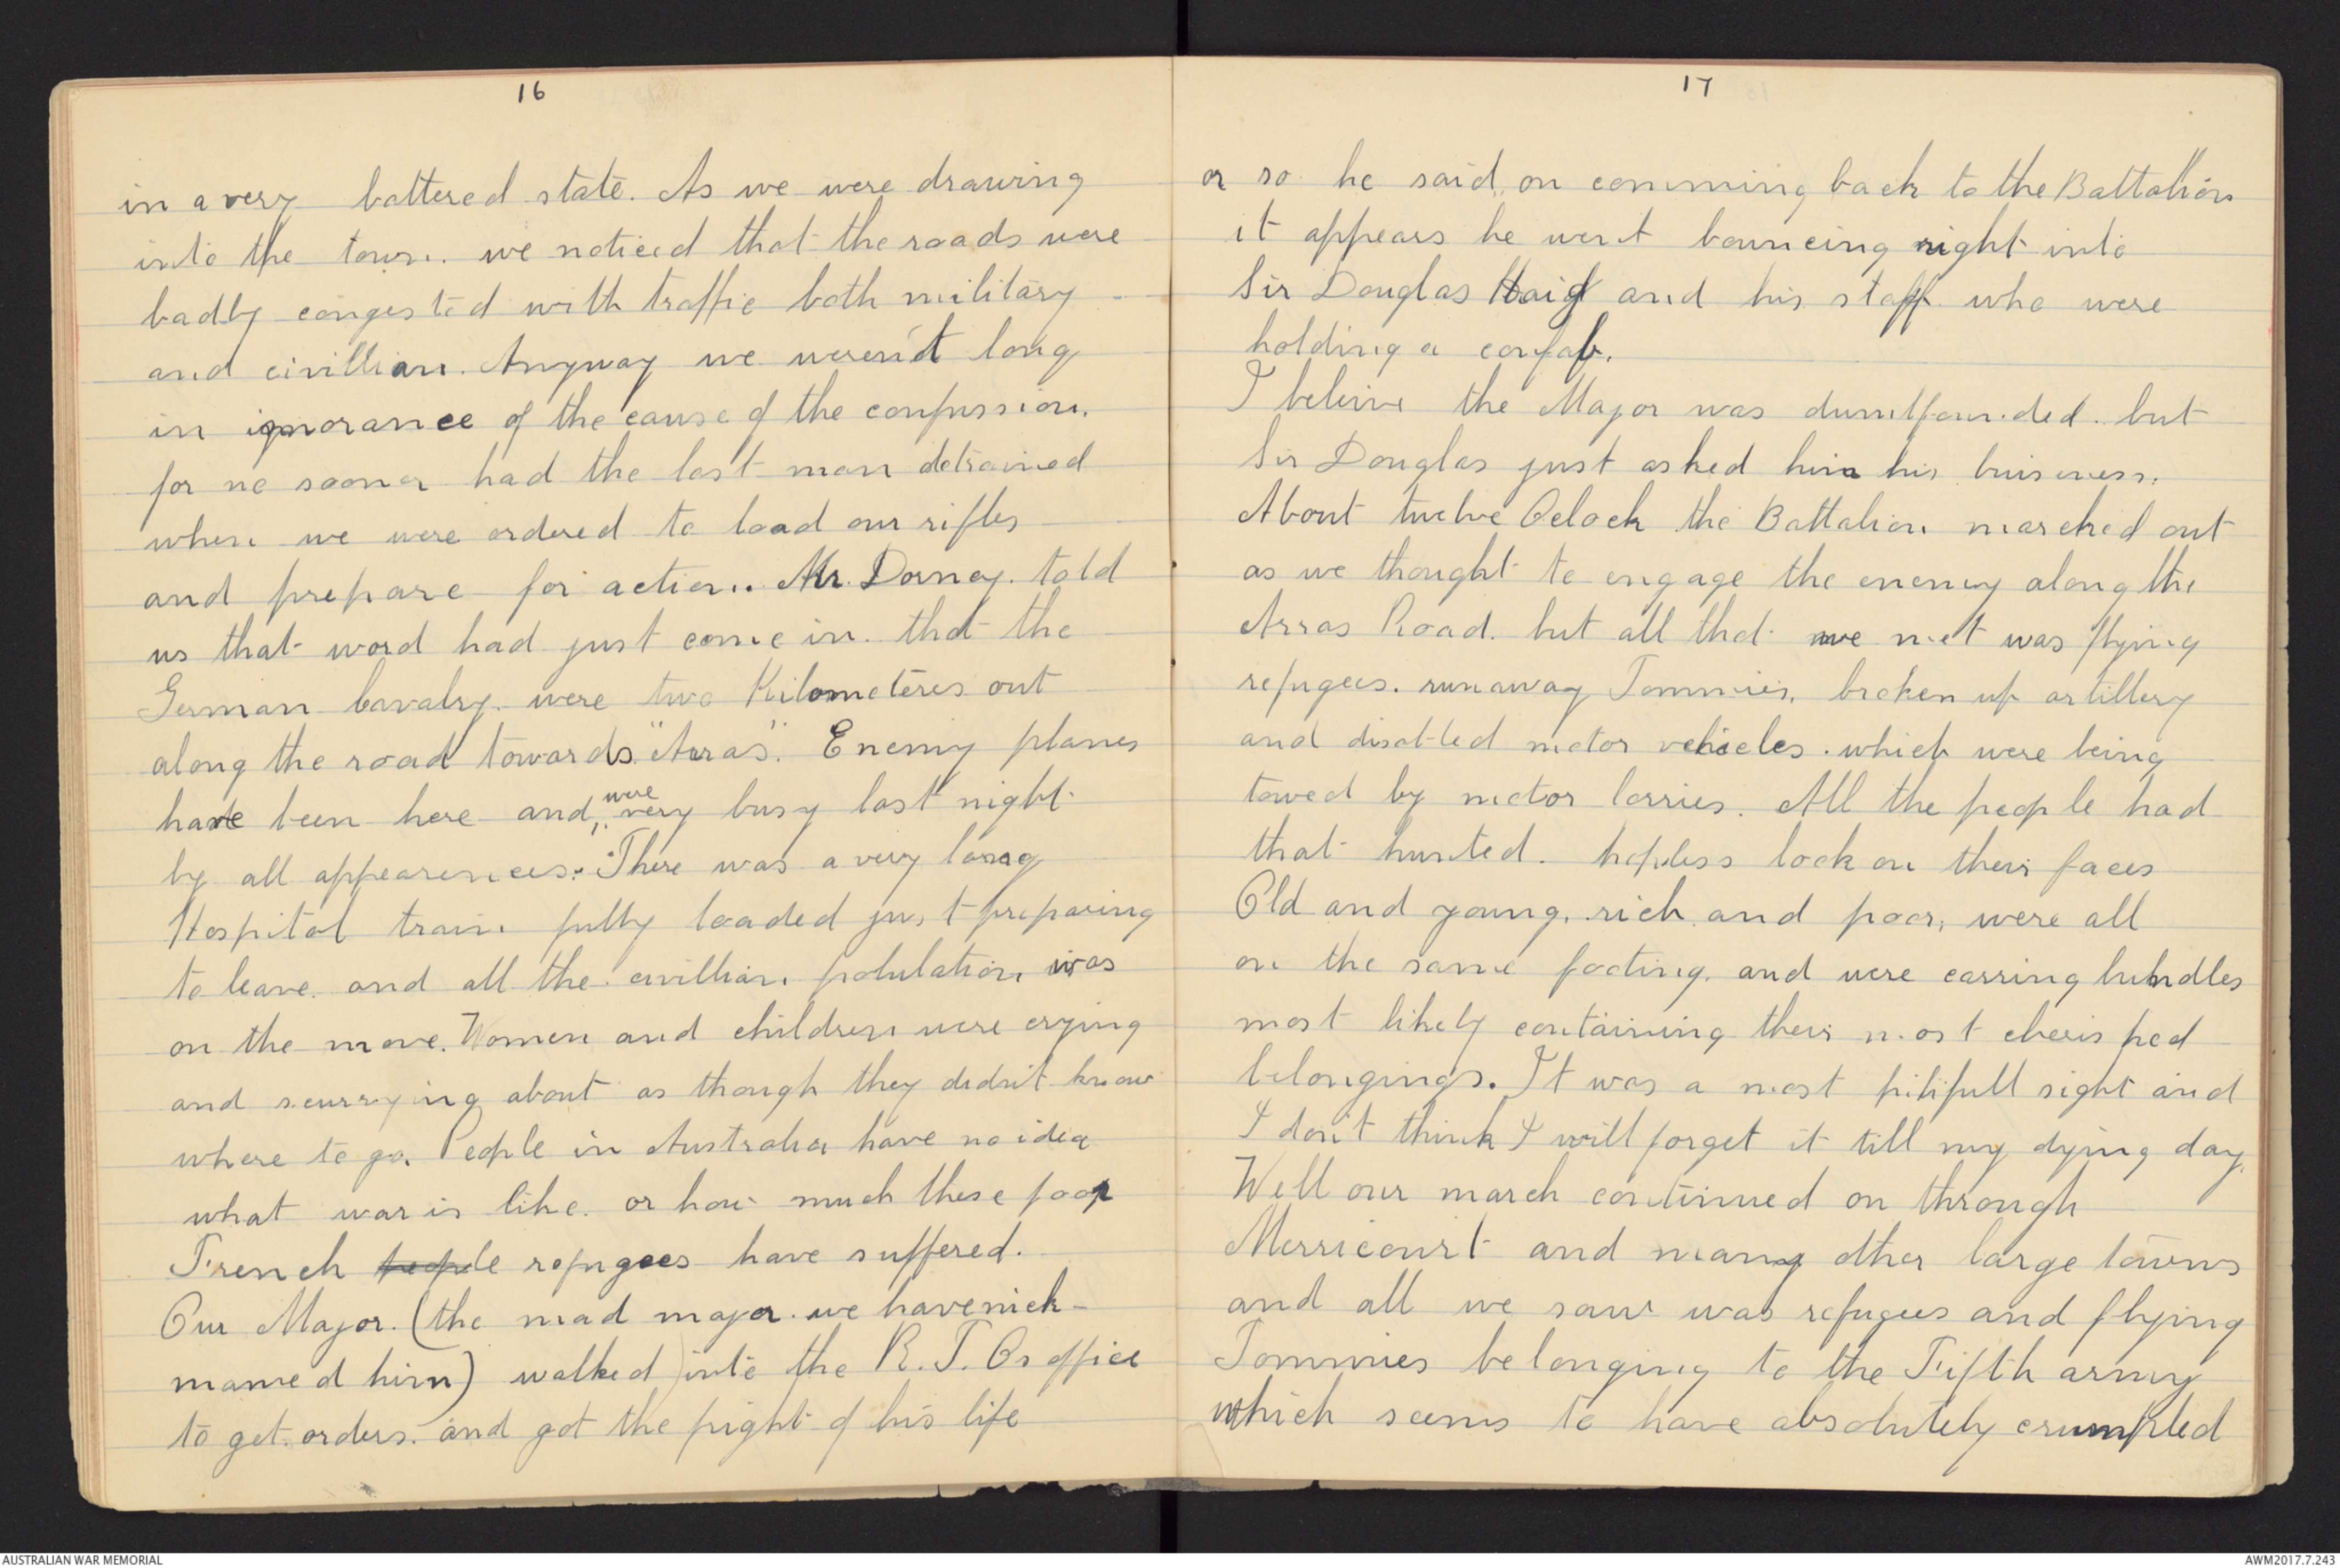 16
in a very battered state. As we were drawing
into the town. we noticed that the roads were
badly congested with traffic both military
and civillian. Anyway we weren't long
in ignorance of the cause of the confussion.
for no sooner had the last man detrained
when we were ordered to load our rifles
and prepare for action. Mr. Dorney. told
us that word had just come in. that the
German Cavalry. were two Kilometeres out
along the road towards "Arras". Enemy planes
have been here and, were very busy last night
by all appearences. There was a very long
Hospital train fully loaded just preparing
to leave. and all the civillian polulation was
on the move. Women and children were crying
and scurrying about as though they didn't know
where to go. People in Australia have no idea
what war is like. or how much these poor
French people refugees have suffered.
Our Major. (the mad major we have nick-
named him) walked into the R.T.Os office
to get orders. and got the fright of his life
17
or so he said, on comming back to the Battalion
it appears he went bouncing right into
Sir Douglas Haig and his staff who were
holding a confab.
I beleive the Major was dumbfounded. but
Sir Douglas just asked him his buisness.
About twelve Oclock the Battalion marched out
as we thought to engage the enemy along the
Arras Road. but all that we met was flying
refugees. runaway Tommies, broken up artillery
and disabled motor vehicles. which were being
towed by motor lorries. All the people had
that hunted. hopless look on their faces
Old and young, rich and poor, were all
on the same footing. and were carring bundles
most likely containing their most cherished
belongings. It was a most pitifull sight and
I don't think I will forget it till my dying day.
Well our march continued on through
Merricourt and many other large towns
and all we saw was refugees and flying
Tommies belonging to the Fifth army
which seems to have absolutely crumpled
AUSTRALIAN WAR MEMORIAL
AWM2017.7.243